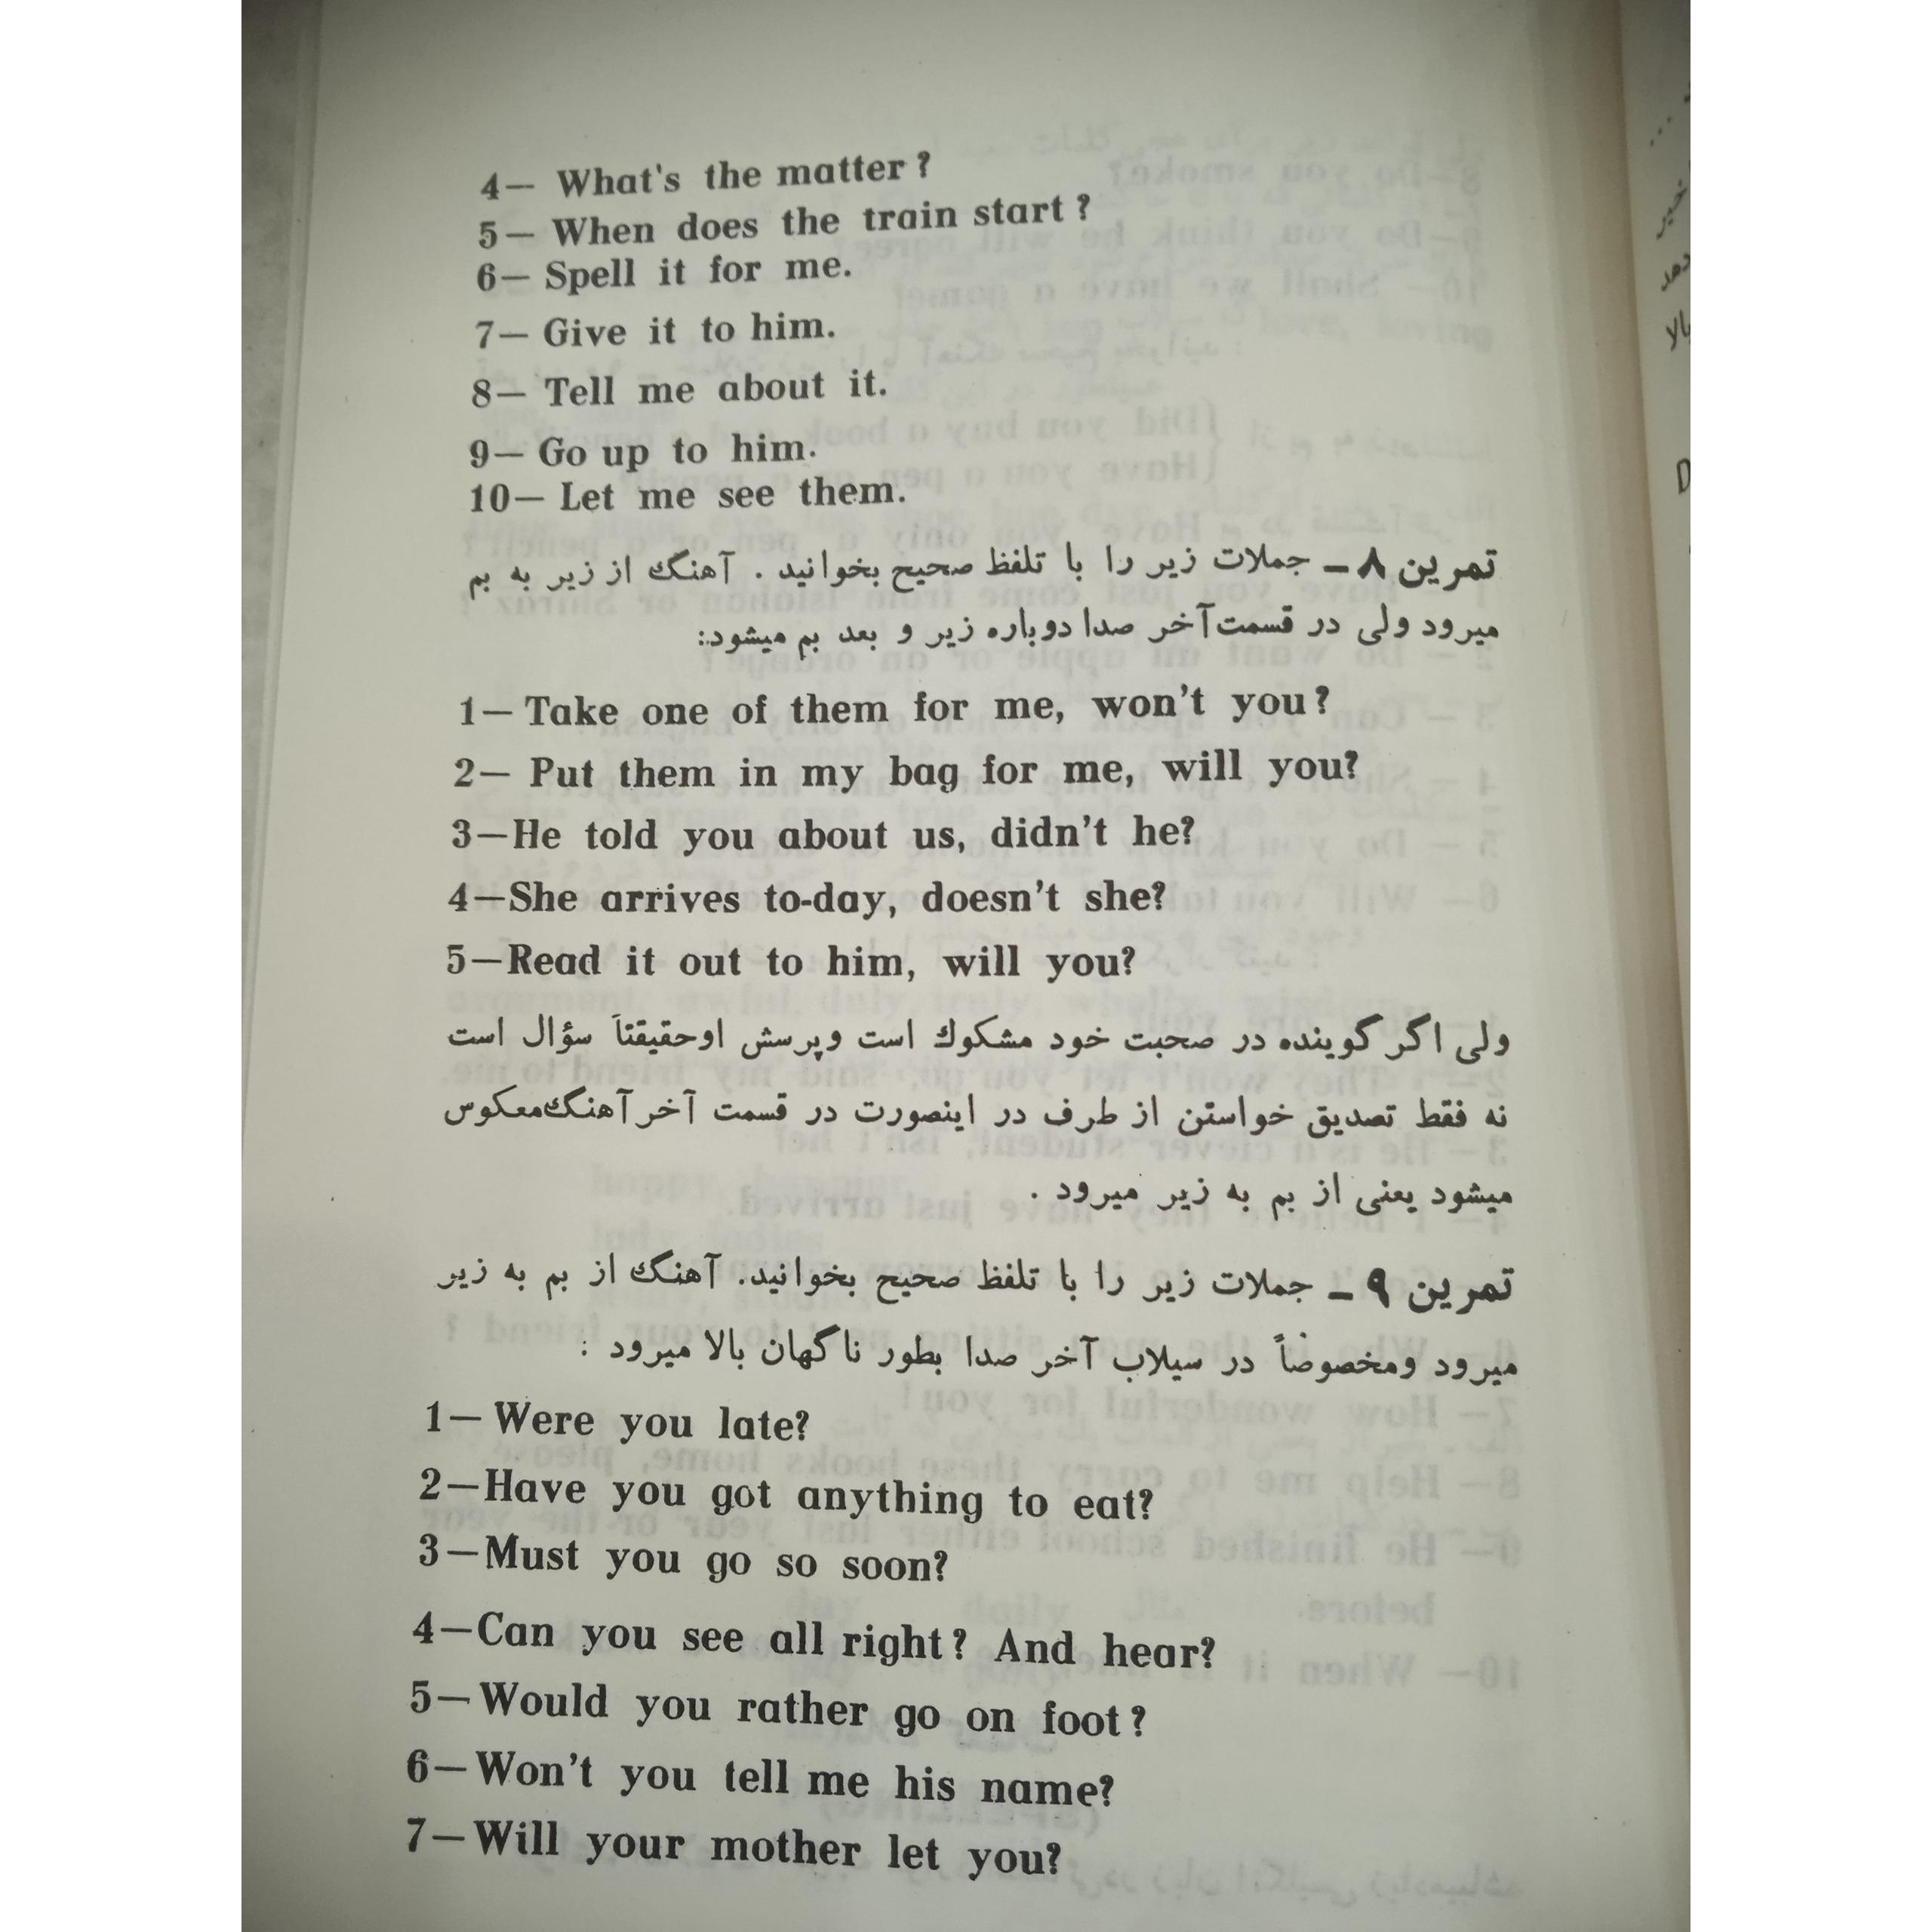 4— What's the matter?
5— When does the train start?
6— Spell it for me.
7— Give it to him.
8— Tell me about it.
9— Go up to him.
10— Let me see them.
تمرین ۸ ـ جملات زیر را با تلفظ صحیح بخوانید . آهنگ از زیر به بم
میرود ولی در قسمت آخر صدا دوباره زیر و بعد بم میشود:
1— Take one of them for me, won't you?
2— Put them in my bag for me, will you?
3—He told you about us, didn't he?
4—She arrives to-day, doesn't she?
5—Read it out to him, will you?
ولی اگر گوینده در صحبت خود مشکوك است وپرسش اوحقیقتاً سؤال است
نه فقط تصدیق خواستن از طرف در اینصورت در قسمت آخر آهنگ معکوس
میشود یعنی از بم به زیر میرود .
تمرین ۹ ـ جملات زیر را با تلفظ صحیح بخوانید. آهنگ از بم به زیر
میرود ومخصوصاً در سیلاب آخر صدا بطور ناگهان بالا میرود :
1— Were you late?
2—Have you got anything to eat?
3—Must you go so soon?
4—Can you see all right? And hear?
5—Would you rather go on foot?
6—Won't you tell me his name?
7—Will your mother let you?
خیر
دهد
بالا
D